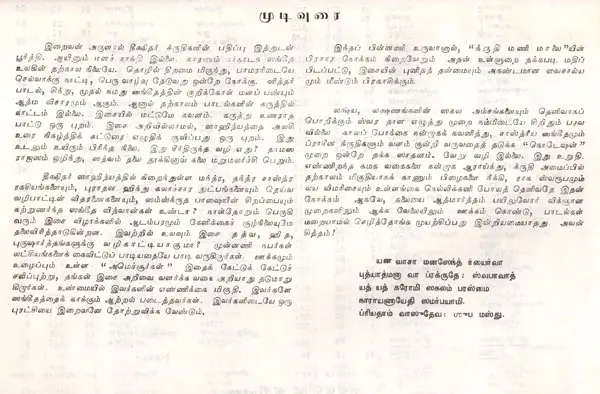 முடிவுரை
இறைவன் அருளால் தீக்ஷிதர் க்ருதிகளின் பதிப்பு இத்துடன்
பூர்த்தி. ஆயினும் மனச் சாந்தி இல்லை. காரணம் கர்நாடக ஸங்கீத
உலகின் தற்கால நிலையே. தொழில் திறமை மிகுந்து, பாமரரிடையே
செல்வாக்கு காட்டி, பெருவாழ்வு தேடுவது ஒன்றே நோக்கு. வித்தர்
பாடல், கித்து, முதல் நமது ஸங்கீதத்தின் குறிக்கோள் மனப் பண்பும்
ஆத்ம விசாரமும் ஆகும். ஆனால் தற்காலம் பாடல்களின் கருத்தில்
நாட்டம் இல்லை. இசையில் மட்டுமே கவனம். கருத்து உணராத
பாட்டு ஒரு புறம். இசை அறிவில்லாமல், ஸாஹித்யத்தை அலசி
உரை நிகழ்த்திக் கட்டுரை எழுதிக் குவிப்பது ஒரு புறம். இது
உடலும் உயிரும் பிரிந்த நிலை. இது சீர்திருந்த வழி எது? தாமஸ
ராஜஸம் ஒழிந்து, ஸத்வம் தலை தூக்கினால் கலை மறுமலர்ச்சி பெறும்.
தீக்ஷிதர் ஸாஹித்யத்தில் கிறைந்துள்ள மந்த்ர, தந்த்ர சாஸ்த்ர
ரகசியங்களையும், புராதன ஹிந்து கலாச்சார நுட்பங்களையும் தெய்வ
வழிபாட்டின் விதானங்களையும், ஸம்ஸ்க்ருத பாஷையின் சிறப்பையும்
கற்றுணர்ந்த ஸங்கீத வித்வான்கள் உண்டா? நாள்தோறும் பெருகி
வரும் இசை விழாக்களில் ஆடம்பரமும் கேளிக்கைச் சூழ்நிலையுமே
தலைவிரித்தாடுகின்றன. இவற்றில் எவ்வகையிலும் இசை தத்வ, ஹித,
புருஷார்த்தங்களுக்கு வழிகாட்டியாகுமா? முன்னணி நபர்கள்
லட்சியங்களைக் கைவிட்டுப் பாடியதையே பாடி வருகிறார்கள். ஊக்கமும்
உழைப்பும் உள்ள “அமெச்சூர்கள்” இதைக் கேட்டுக் கேட்டுச்
சலிப்புற்று, தங்கள் இசை அறிவை வளர்க்க வகை அறியாது தடுமாறு
கிறார்கள். உண்மையில் இவர்களின் எண்ணிக்கை மிகுதி. இவர்களே
ஸங்கீதத்தைக் காக்கும் ஆற்றல் படைத்தவர்கள். இவர்களிடையே ஒரு
புரட்சியை இறைவனே தோற்றுவிக்க வேண்டும்.
இந்தப் பின்னணி உருவானால், “க்ருதி மணி மாலை”யின்
பிரசார நோக்கம் நிறைவேறும் அதன் உள்ளுறை தக்கபடி மதிப்
பிடப்பட்டு, இசையின் புனிதத் தன்மையும் அகண்டமான வைசால்ய
மும் மீண்டும் பிரகாசிக்கும்.
லக்ஷ்ய, லக்ஷணங்களின் ஸகல அம்சங்களையும் தெளிவாகப்
பொறிக்கும் ஸ்வர தாள எழுத்து முறை நம்மிடையே சிறிதும் பரவ
வில்லை. காலப் போக்கை நன்றாகக் கவனித்து, சாஸ்த்ரீய ஸங்கீதமும்
ப்ராசீன க்ருதிகளும் வளம் குன்றி வருவதைத் தடுக்க “நொடேஷன்”
முறை ஒன்றே தக்க ஸாதனம். வேறு வழி இல்லை. இது உறுதி.
எண்ணிறந்த கமக வகைகளை நன்கு ஆராய்ந்து, க்ருதி அமைப்பில்
தற்காலம் மிகுதியாகக் காணும் பிழைகளை நீக்கி, ராக ஸ்வரூபமும்
லய விமரிசையும் உள்ளங்கை நெல்லிக்கனி போலத் தெளிவதே இதன்
நோக்கம் ஆகவே, கலையை ஆத்மார்த்தம் பயிலுவோர் விஞ்ஞான
முறைகளிலும் ஆக்க வேலையிலும் ஊக்கம் கொண்டு, பாடல்கள்
மறையாமல் செழித்தோங்க முயற்சிப்பது இன்றியமையாதது அவன்
சித்தம்!
யன வாசா மனஸேந்த்ரியைர்வா
புத்யாத்மனா வா ப்ரக்ருதே: ஸ்வபாவாத்
யத் யத் கரோமி ஸகலம் பரஸ்மை
நாராயணாயேதி ஸமர்பயாமி.
ப்ரியதாம் வாஸுதேவ: ஶுப மஸ்து.